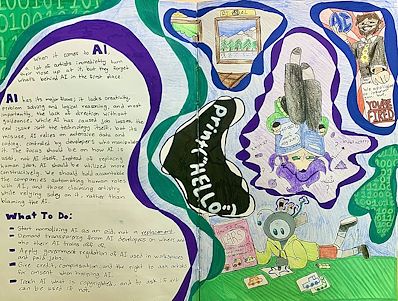 When it comes to AI
a lot of artists immediately turn
their nose up at it, but they forget
what's behind AI in the first place.
AI has its major flaws; it lacks creativity,
problem solving and logical reasoning, and most
importantly, the lack of direction without
guidance. While AI has caused job losses, the
real issue isn't the technology itself, but its
misuse. AI relies on extensive data and
coding, controlled by developers who manipulate
it. The focus should be on how AI is
used, not AI itself. Instead of replace
human jobs, AI should be utilized more
constructively. We should hold accountable
the companies eliminating human roles
with AI, and those claiming artistry
while relying solely on it, rather than
blaming the AI.
What To Do:
Start normalizing AI as an aid, not a replacement
Demand transparency from AI developers on where and
who their AI trains off of.
Apply government regulation of AI used in workspaces
and paid jobs.
Give credit, compensation, and the right to ask artists
for consent when training AI.
Teach AI what is copyrighted, and to ask if art
can be used
Print("HELLO
AI
YOU'RE
FIRED